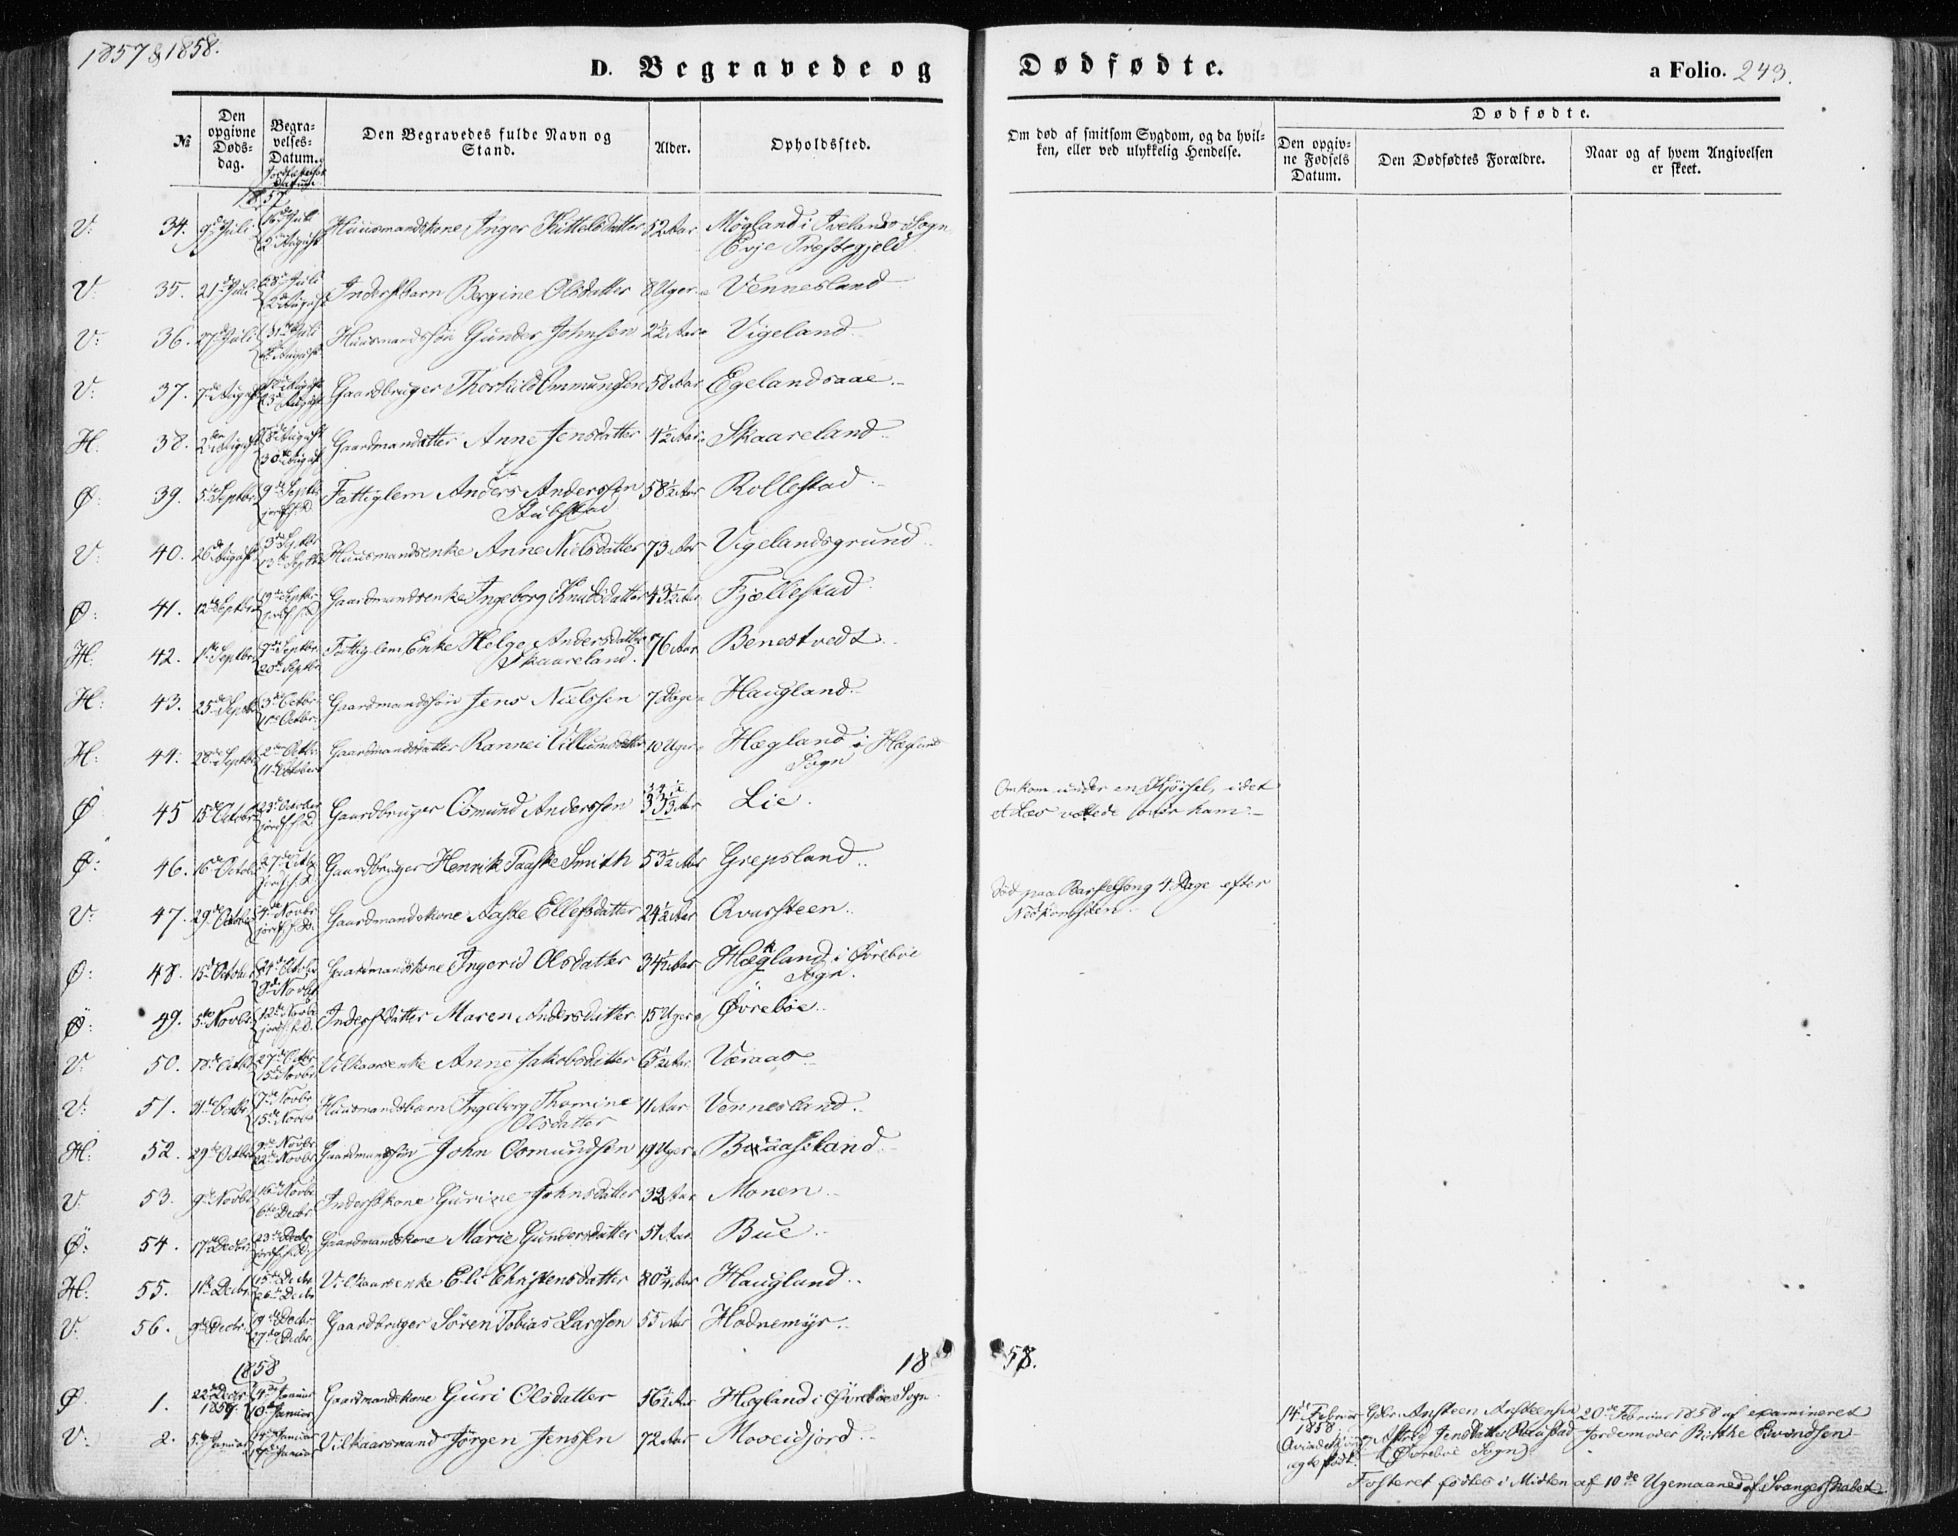 1857 & 1858.
D. Begravede og Dødfødte. a Folio. 243.
Dødfødte.
№
Den opgivne Døds-dag.
Begra-velses-Datum.
Den Begravedes fulde Navn og Stand.
Alder.
Opholdssted.
Om død af smitsom Sygdom, og da hvil-ken, eller ved ulykkelig Hendelse.
Den opgiv-ne Fødsels Datum.
Den Dødfødtes Forældre.
Naar og af hvem Angivelsen er skeet.
1857
V: 34. 9de Juli Huusmandskone Inger Kittelsdatter 52 Aar Møgland i Ivelands Sogn
2den August Evje Præstegjeld
V: 35. 21de Juli Inderstbarn Bergine Olsdatter 8 Uger Vennesland
V: 36. 27de Juli 31te Juli Huusmandssøn Gunder Johnsen 2½ Aar Vigeland
V: 37. 7de August Gaardbruger Thorkild Ommundsen 58 Aar Egelandsaae
H: 38. 2den August 30te August Gaardmandsdatter Anne Jensdatter 4½ Aar Skaareland
Ø: 39. 5te Septbr. 9de Septbr. Fattiglem Anders Anderssen 58½ Aar Rollestad
jordf. s. D. Stubstad
V: 40. 26de August 13de Septbr Huusmandsenke Anne Nielsdatter 73 Aar Vigelandsgrund
Ø: 41. 12te Septbr 19de Septbr jordf. s. D. Gaardmandsenke Ingeborg Knudsdatter 43½ Aar Fjellestad
H: 42. 1ste Septbr 9de Septbr Fattiglem Enke Helge Andersdatter 76 Aar Benestvedt
20de Septbr Skaareland.
H: 43. 25de Septbr 3de Octbr 11te Octbr. Gaardmandssøn Jens Nielssen 7 Dage Haugland
H: 44. 28de Septbr 2den Octbr 11te October Gaardmandsdatter Rannei Villumsdatter 10 Uger Hægland i Hægland
Sogn
Ø 45 15de Octobr 23de October jordf. s. D. Gaardbruger Osmund Anderssen Lie. Omkom under en Kjørsel, idet
et Læs væltede over ham.
Ø: 46. 16de Octob. 27de Octbr jordf. s. D. Gaardbruger Henrik Taaske Smith 53½ Aar Grepsland
V: 47. 29de Octobr 4de Novbr jordf. s. D. Gaardmandskone Aaste Ellefsdatter 24½ Aar Qvarsteen Død paa Barselseng 4 Dage efter
Nedkomsten
Ø: 48. 15de October 21de Octobr Gaardmandskone Ingerid Olsdatter 34½ Aar Hægland i Øvrebøe
Novbr Sogn.
Ø: 49. 5te Novbr. 12te Novbr jordf. s. D. Inderstdatter Maren Andersdatter 15 Uger Øvrebøe
V: 50. 18de Octbr 27de Octbr 15de Novbr. Vilkaarsenke Anne Jakobsdatter Aar Væraas
V: 51. 31te Octbr 7de Novbr Huusmandsbarn Ingeborg Thomine 11 Aar Vennesland
15de Novbr Olsdatter
H: 52. 29de Octbr 9de Novbr 22de Novbr Gaardmandssøn John Osmundsen 19 Uger Braaseland
V: 53. 9de Novbr 16de Novbr 6te Decbr Inderstkone Gurine Johnsdatter 32 Aar Monen
Ø: 54. 17de Decbr 23de Decbr jordf. s. D. Gaardmandskone Marie Gundersdatter 51 Aar Bue
H: 55. 11te Decbr 15de Decbr 26de Decbr Vilkaarsenke Eli Christensdatter 80¾ Aar Haugland
V: 56. 9de Decbr 19de Decbr 27de Decbr. Gaardbruger Søren Tobias Larssen 55 Aar Hodnemyr
1858 18 58.
Ø: 1. 22de Decbr 1857. 4de Januar 10de Januar Gaardmandskone Guri Olsdatter 56½ Aar Hægland i Øvrebøe Sogn
V: 2. 5te Januar 17de Januar Vilkaarsmand Jørgen Jenssen 72 Aar Moveidjord
14de Februar Gbr. Ansteen Ansteensen 20de Februar 1858 af examineret
1858 Astrid Jensdatter Rolstad Jordemoder Birthe Eivindsen
Qvindekjøn (Øvrebøe Sogn)
ægte født.
Fosteret fødtes i Midten af 10de Ugemaaned af Svangerskabet